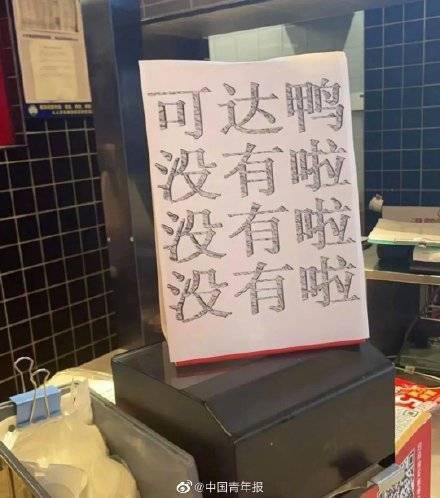 可达鸭
没有啦
没有啦
没有啦
@中国青年报